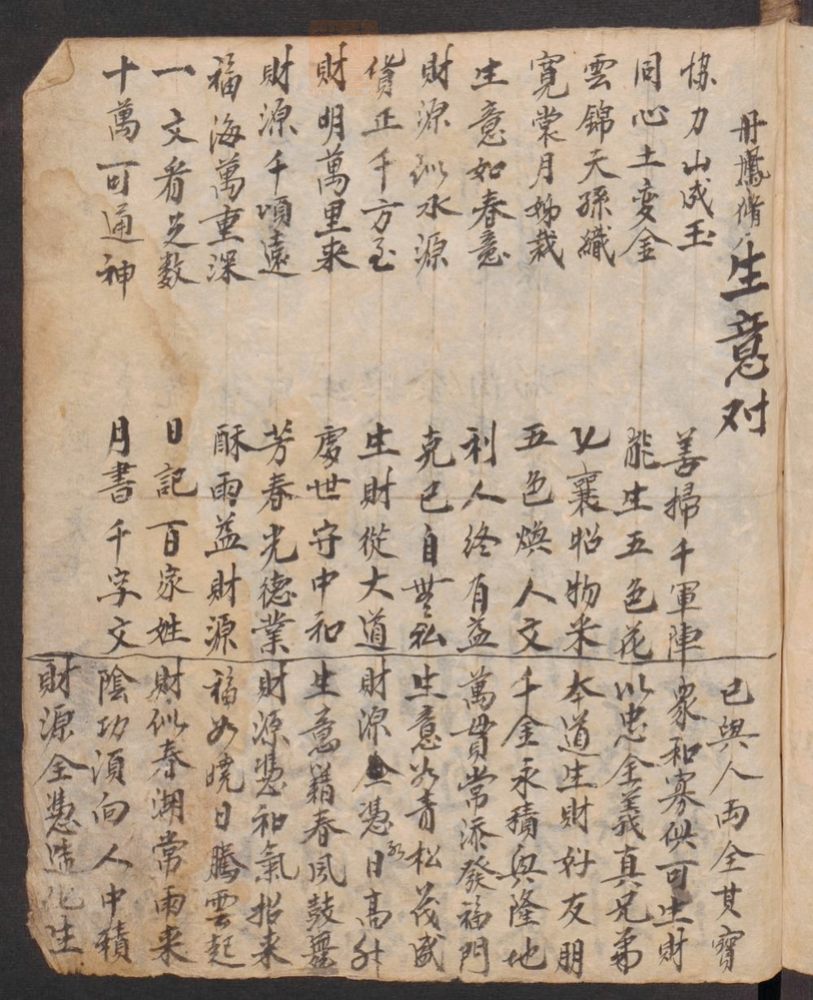 丹鳳脩
生意对
協力山成玉
同心土変金
雲錦天孫織
霓裳月姊裁
生意如春意
財源似水源
貨正千方至
財明萬里来
財源千頃遠
福海萬重深
一文看兂数
十萬可通神
善掃千軍陣
能生五色花
乂襄昭物米
五色煥人文
利人終有益
克己自無私
生財從大道
處世守中和
芳春光德業
酥雨益財源
日記百家姓
月書千字文
己與人両全其寳
家和寡供可生財
以忠全義真兄弟
本道生財好友朋
千金永積興隆地
萬貫常添發福門
生意如青松茂盛
財源全憑日高升
生意藉春風鼓舞
財源憑和氣招来
福如曉日騰雲起
財似春潮帶雨来
陰功須向人中積
財源全憑造化生